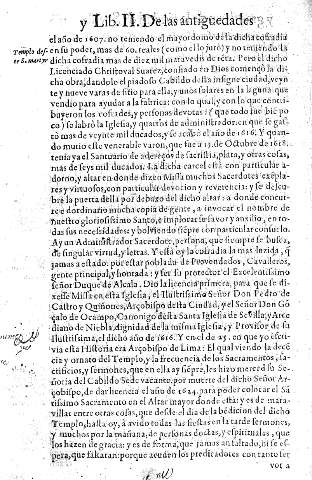 y Lib. II. De las antiguedades
el año de 1607. no teniendo el mayordomo de la dicha cofradia
en su poder, mas de 60. reales (como el juró) y no teniendo la
dicha cofradia mas de diez mil maravedis de réta. Pero el dicho
Licenciado Christoval Suarez, confiado en Dios començò la dicha
obra, dandole el piadoso Cabildo desta insigne ciudad, veynte
y nueve varas de sitio para ella, y unos solares en la laguna que
vendio para ayudar a la fabrica: con lo qual, y con lo que contibuyeron
los cofrades, y personas devotas (que todo fue biē poco)
se labrò la Iglesia, y quartos de administrador, en que se gastò
mas de veynte mil ducados, y se acabò el año de 1616. Y quando
murio este venerable varon, que fue a 13. de Octubre de 1618.
tenia ya el Santuario de adereços de sacristia, plata, y otras cosas,
mas de seys mil ducados. La dicha carcel està con particular adorno,
y altar en donde dizen Missa muchos Sacerdotes exeplares
y virtuosos, con particular devocion y reverencia: y se descubre
la puerta della por debaxo del dicho altar: a donde concurre
de ordinario mucha copia de gente, a invocar el nombre de
nuestro gloriosissimo Santo, e implorar su favor y auxilio, en todas
sus necessidades: y bolviendo siēpre con particular consuelo.
Ay un Administrador Sacerdote, persona, que siempre se busca,
de singular virtud, y letras. Y està oy la cofradia la mas luzida, q̃
jamas a estado: por estar poblada de Proveidores, Cavalleros,
gente principal, y hontada: y ser su protector el Excelentissimo
señor Duque de Alcala. Dio la licencia primera, para que se dixesse
Missa en esta Iglesia, el Illustrissimo Señor Don Pedro de
Castro y Quiñones, Arçobispo desta Ciudad, y el Señor Don Gōçalo
de Ocampo, Canonigo desta Santa Iglesia de Sevilla; y Arcediano
de Niebla, dignidad de la misma Iglesia, y Provisor de su
Illustrissima, el dicho año de 1616. Y en el de 25. en que yo escrivia
esta historia era Arçobispo de Lima: El qual viendo la decēcia
y ornato del Templo, y la frecuencia de los Sacramentos, sacrificios,
y sermones, que en ella ay siēpre, les hizo merced su Señoria
del Cabildo Sede vacante, por muerte del dicho Señor Arçobispo,
de dar licencia el año de 1624. para poder colocar el Santissimo
Sacramento en el Altar mayor donde està: y es de maravillar
entre otras cosas, que desde el dia de la dedicion del dicho
Templo, hasta oy, à avido todas las fiestas en la tarde sermones,
y muchos por la mañana, de personas doctas, y espirituales, que
los hazen de gracia: y es de forma, que jamas an faltado, ni se espera,
que faltaran: porque acuden los predicadores con tanto fer
vor a